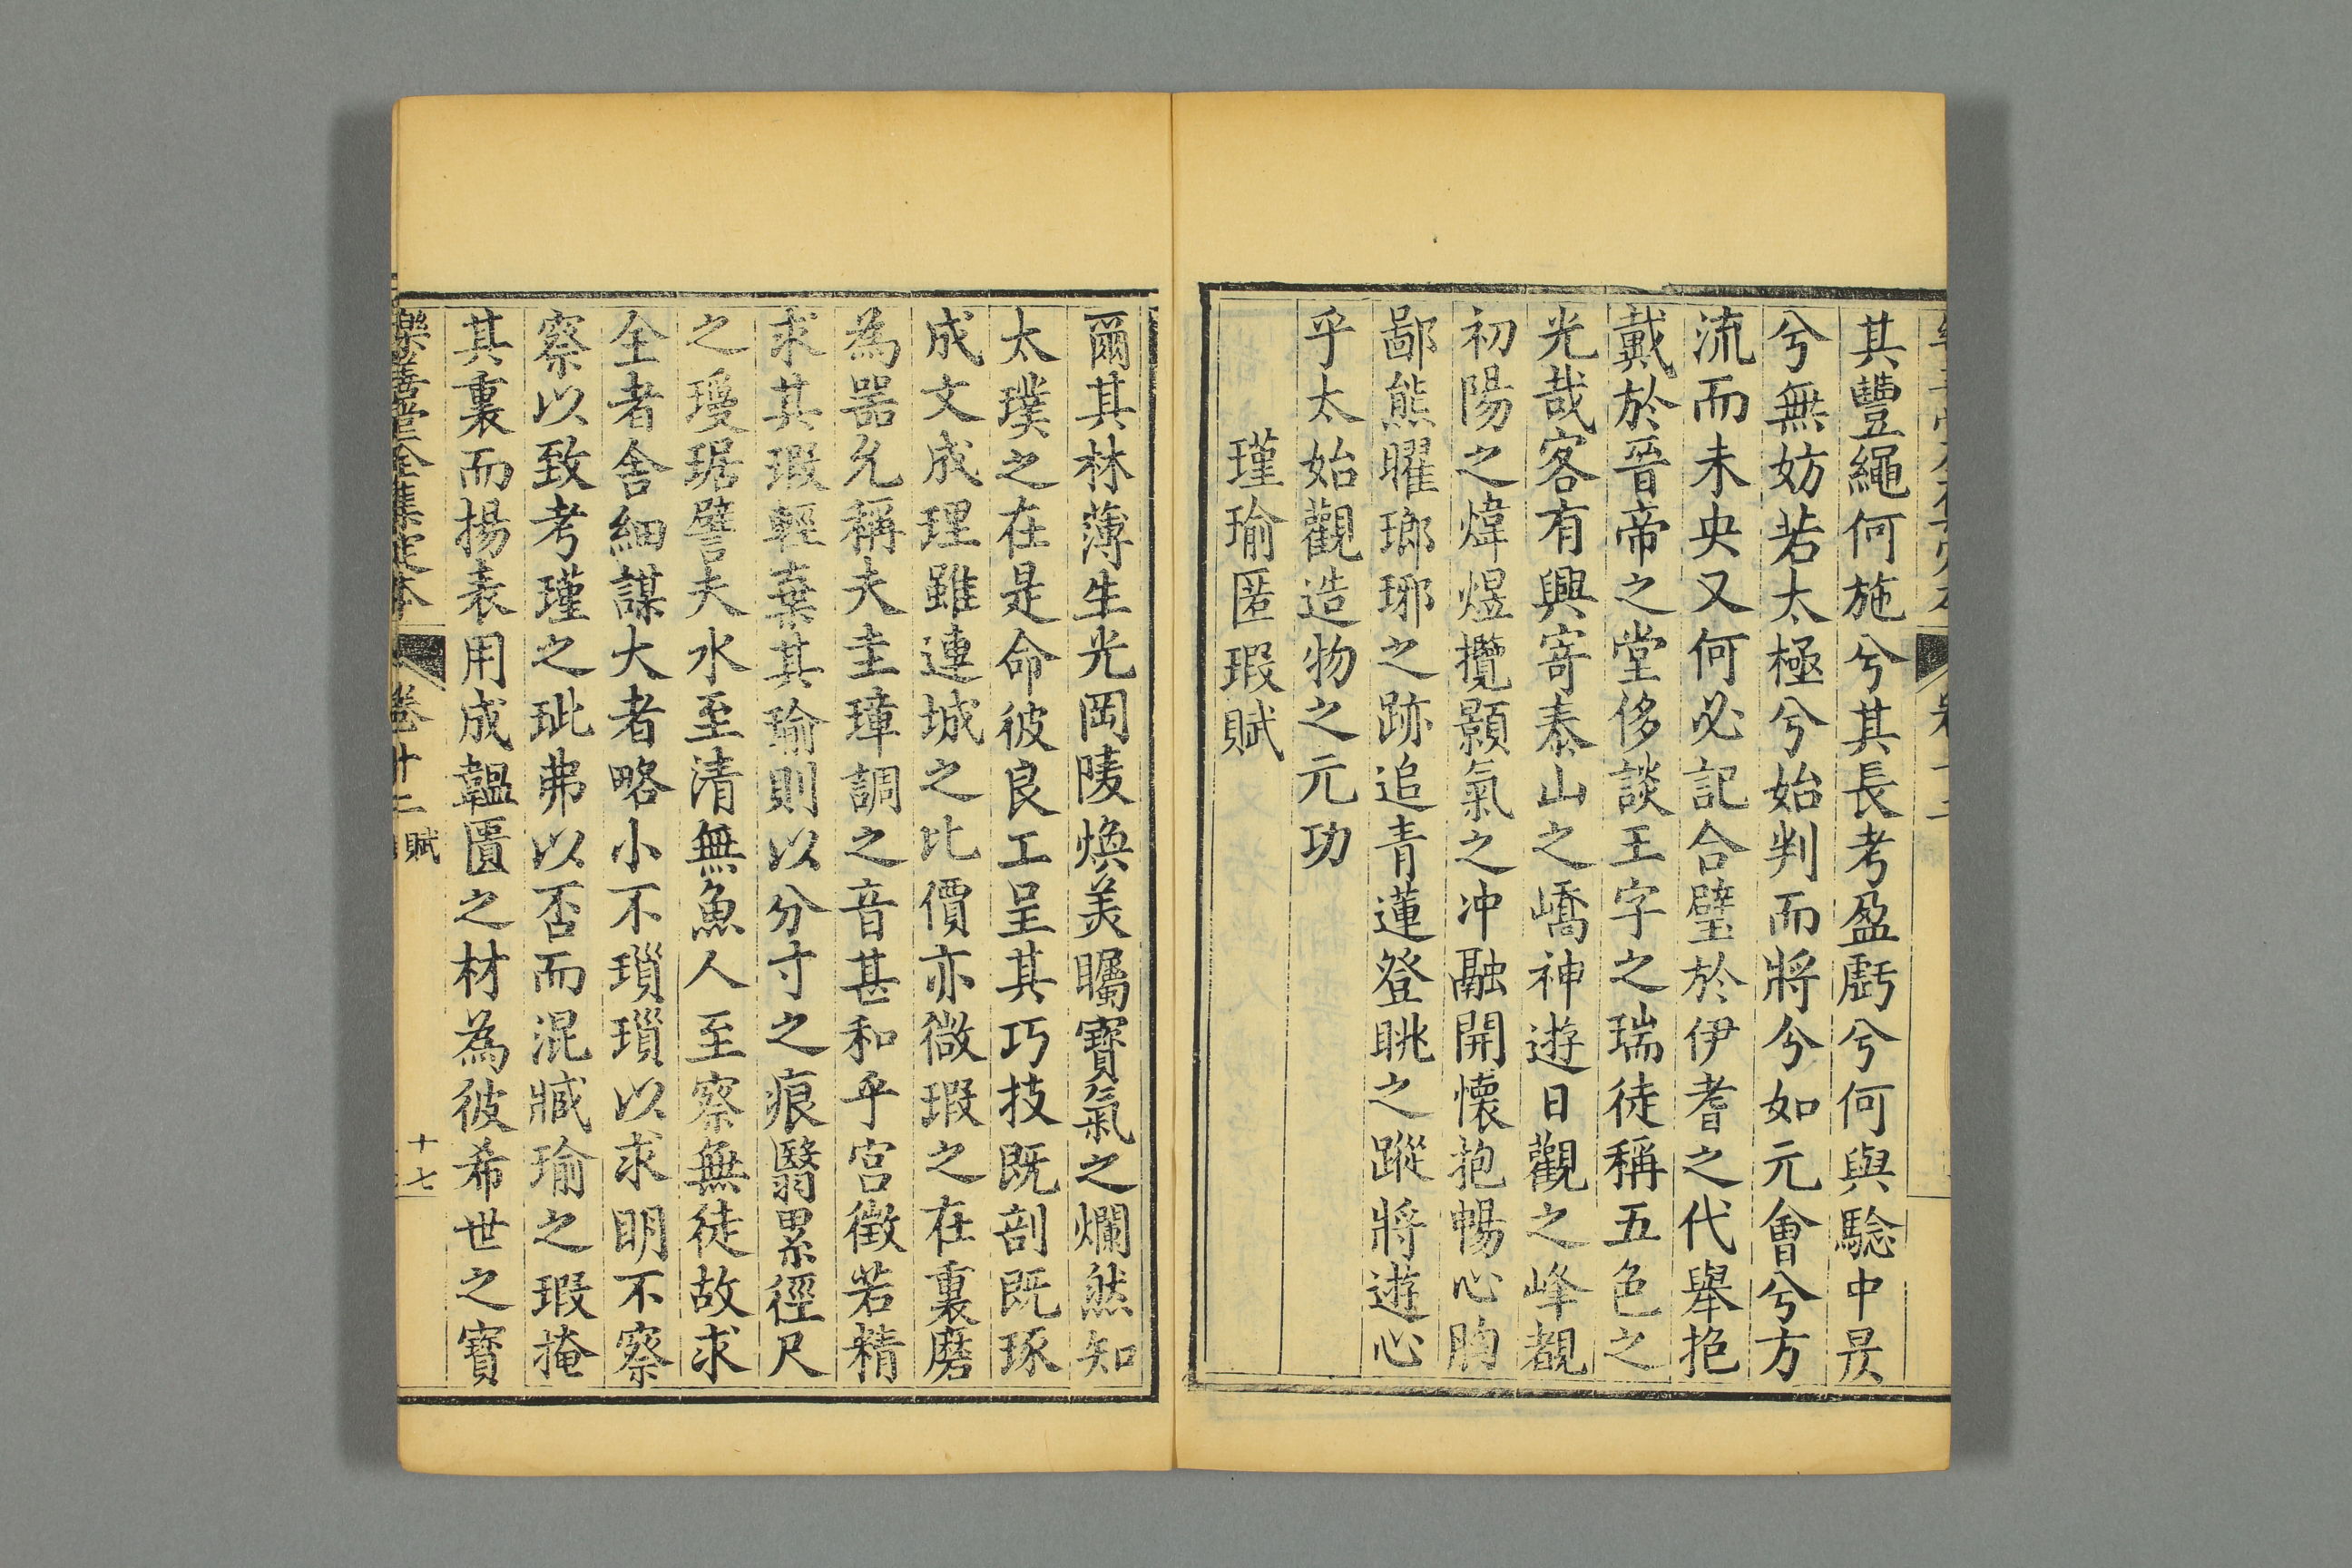 其豐繩何施兮其長考盈虧兮何與騐中昃
兮無妨若太極兮始判而將分如元會兮方
流而未央又何必記合璧於伊耆之代舉抱
戴於晉帝之堂侈談王字之瑞徒稱五色之
光哉客有興寄泰山之嶠神遊日觀之峰覩
初陽之煒煜攬顥氣之冲融開懷抱暢心胸
鄙熊曜瑯琊之跡追青蓮登眺之蹤將遊心
乎太始觀造物之元功
瑾瑜匿瑕賦
爾其林薄生光岡陵煥美矚寶氣之爛然知
太璞之在是命彼良工呈其巧技既剖既琢
成文成理雖連城之比價亦微瑕之在裏磨
為噐允稱夫圭璋調之音甚和乎宮徵若精
求其瑕輕棄其瑜則以分寸之痕翳累徑尺
之璦琚譬夫水至清無魚人至察無徒故求
全者舍細謀大者略小不瑣瑣以求明不察
察以致考瑾之玼弗以否而混臧瑜之瑕掩
其裏而揚表用成韞匵之材為彼希世之寶
樂善堂全集定本 卷十二 賦 十七